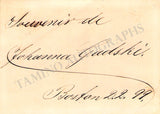 Souvenir de
Johanna Gadski.
Boston 22. 99.
TAMINO AUTOGRAPHS